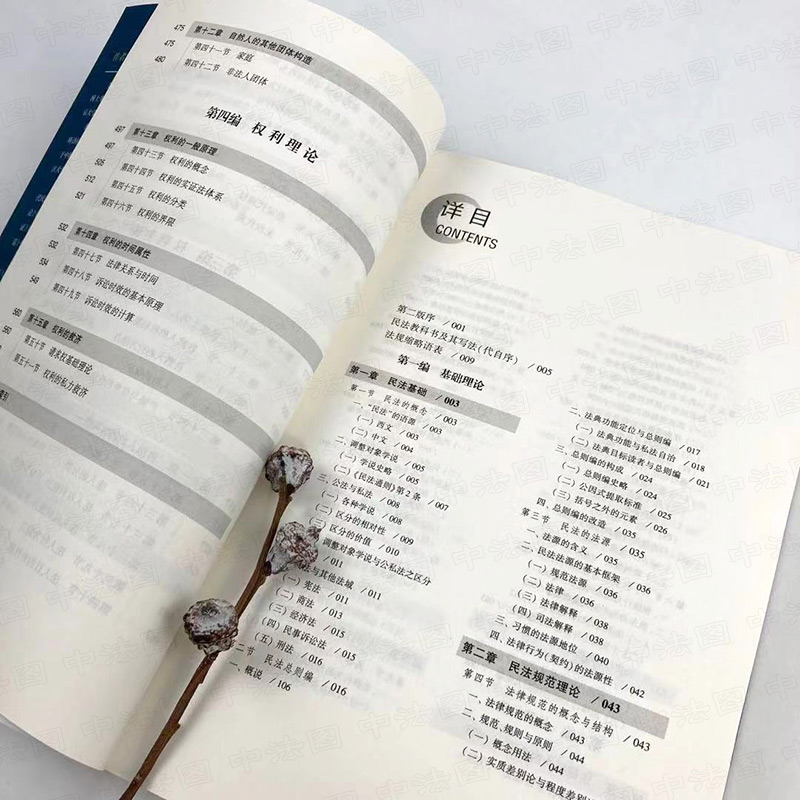 475 第十二章 自然人的其他团体构造
475 第四十一节 家庭
480 第四十二节 非法人团体
第四编 权利理论
497 第十三章 权利的一般原理
497 第四十三节 权利的概念
506 第四十四节 权利的实证法体系
512 第四十五节 权利的分类
521 第四十六节 权利的界限
532 第十四章 权利的时间属性
532 第四十七节 法律关系与时间
第四十八节 诉讼时效的基本原理
第四十九节 诉讼时效的计算
第十五章 权利的救济
第五十节 请求权基础理论
第五十一节 权利的私力救济
索引
详目
CONTENTS
第二版序 /001
民法教科书及其写法(代自序) /005
法规缩略语表 /009
第一编 基础理论
第一章 民法基础 /003
第一节 民法的概念 /003
一、“民法”的语源 /003
(一)西文 /003
(二)中文 /004
二、调整对象学说 /005
(一)学说史略 /005
(二)《民法通则》第2条 /007
三、公法与私法 /008
(一)各种学说 /008
(二)区分的相对性 /009
(三)区分的价值 /010
调整对象学说与公私法之区分
/011
与其他法域 /011
(一)宪法 /011
(二)商法 /013
(三)经济法 /015
(四)民事诉讼法 /015
(五)刑法 /016
二节 民法总则编 /016
一、概说 /106
二、法典功能定位与总则编 /017
(一)法典功能与私法自治 /018
(二)法典目标读者与总则编 /021
三、总则编的构成 /024
(一)总则编史略 /024
(二)公因式提取标准 /025
(三)括号之外的元素 /026
四、总则编的改造 /035
第三节 民法的法源 /035
一、法源的含义 /035
二、民法法源的基本框架 /036
(一)规范法源 /036
(二)法律 /036
(三)法律解释 /038
(四)司法解释 /038
三、习惯的法源地位 /040
四、法律行为(契约)的法源性 /042
第二章 民法规范理论 /043
第四节 法律规范的概念与结构 /043
一、法律规范的概念 /043
二、规范、规则与原则 /044
(一)概念用法 /044
(二)实质差别论与程度差别论
中法图